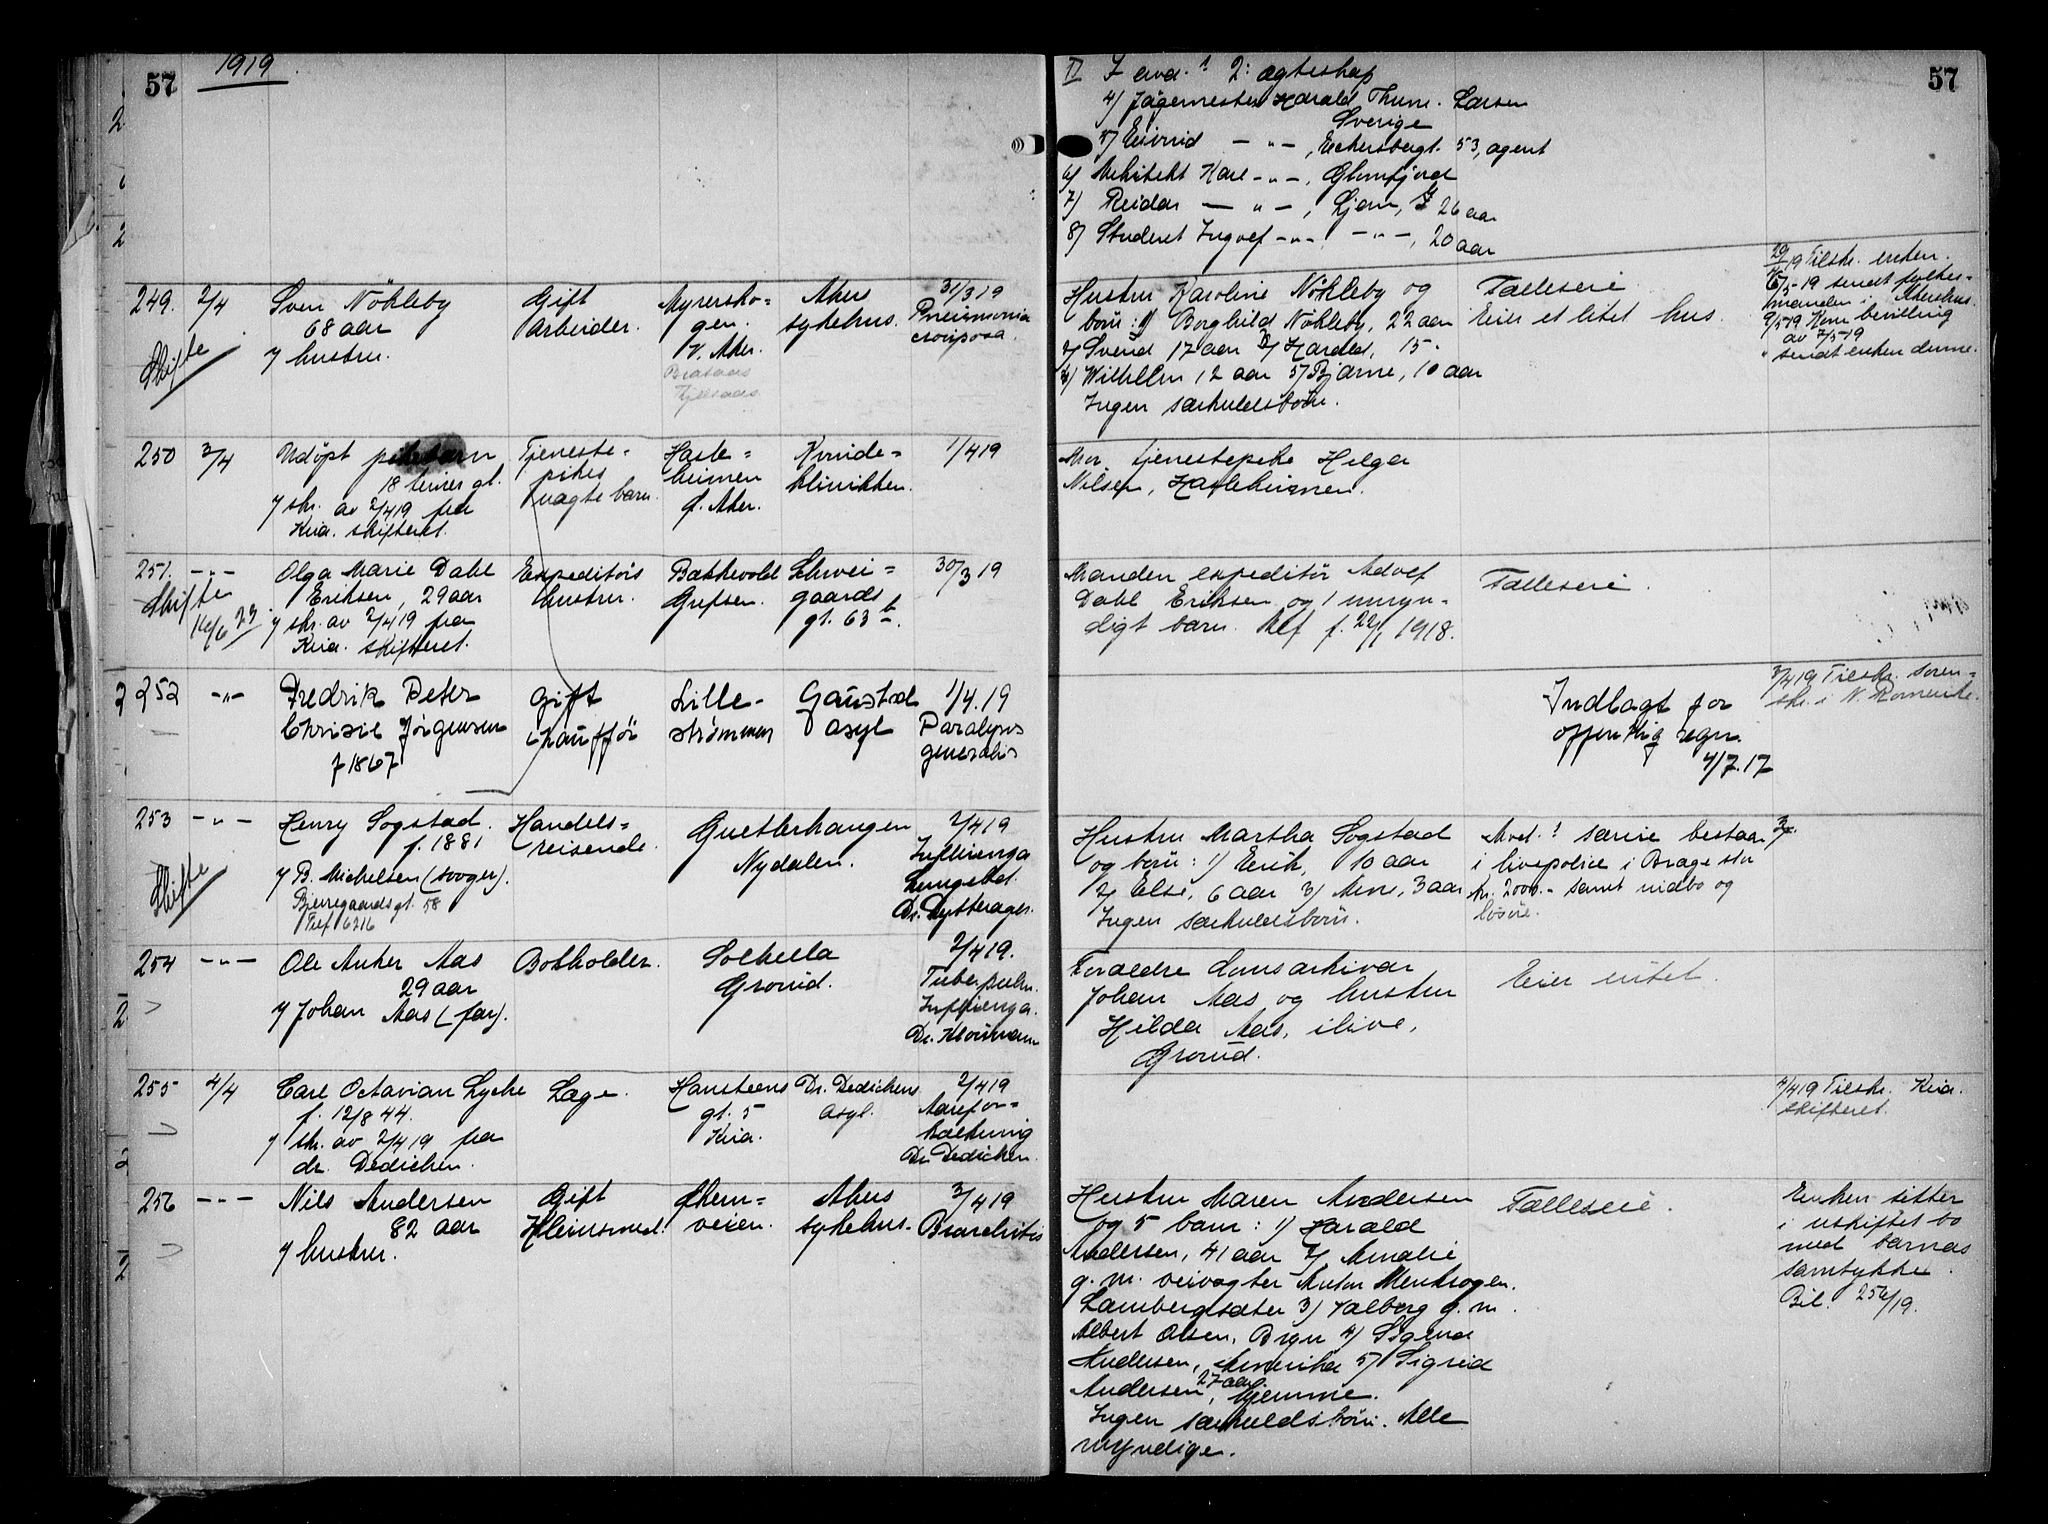 57
1919
249. 2/4
Skifte
Sven Nökleby
68 aar
y hustru.
Gift
arbeider.
Myrersko-
gen.
V. Aker.
Akers
sykehus.
31/3 19
Pneumonia
crouposa.
250 3/4
Udøpt pikebarn
18 timer gl.
y skr. av 2/4 19 fra
Kria. skifteret.
Tjeneste-
pikes
uægte barn.
Hasle-
heimen
Ø. Aker.
Kvinde-
klinikken.
1/4 19
251. -"-
Skifte
16/6 23
Olga Marie Dahl
Eriksen, 29 aar
y skr. av 2/4 19 fra
Kria. skifteret.
Expeditørs
hustru.
Bakkevold
Grefsen.
Schwei-
gaards
gt. 63 b.
30/3 19
252 -"-
Fredrik Peter
Chrisie Jørgensen
f 1867
gift
chauffør
Lille-
strømmen
Gaustad
asyl
1/4.19
Paralysis
generalis
253 -"-
Skifte
Henry Sogstad.
f. 1881
y B. Michelsen (svoger).
Bjerregaardsgt. 58
Telf 6216
Handels-
reisende.
Gretlerhaugen
Nydalen.
2/4 19
Influenza
Lungebet.
Dr. Lytterager.
254 -"-
Ole Anker Aas
29 aar
y Johan Aas (far).
Bokholder.
Solhella
Grorud.
2/4 19.
Tuber. pulm.
Influenza.
Dr. Kloumann
255 4/4
Carl Octavian Lyche
f. 12/8 44.
y skr. av 2/4 19 fra
dr. Dedichen.
Læge.
Hansteens
gt. 5
Kria.
Dr. Dedichens
asyl.
2/4 19
Aarefor-
kalkning
Dr. Dedichen.
256 -"-
Nils Andersen
82 aar
y hustru.
Gift
Kleinsmed.
veien.
Akers
sykehus.
3/4 19
Bronchitis
57
II I avd. ? 2: ægteskap
4) Jägermester Harald Thum. Larsen
Sverige
5) Eivind -"-, Eckersbergt. 53, agent
6) Arkitekt Kare -"-, Glomfjord
7) Reidar -"-, Ljan, 26 aar
8) Student Ingolf -"-, -"-, 20 aar
Hustru Karoline Nökleby og
born: 1) Borghild Nökleby, 22 aar
2) Svend 17 aar 3) Harald, 15 "
4) Wilhelm 12 aar 5) Bjarne, 10 aar
Ingen særkuldsbørn.
Fælleseie
Eier et litet hus.
29/4 19 Tilskr. enken.
6/5-19 sendt fylkes-
manden i Akershus.
9/5-19 Kom bevilling
av 7/5-19
" sendt enken denne.
Mor. tjenestepike Helga
Nilsen, Hasleheimen.
Manden expeditør Adolf
Dahl Eriksen og 1 umyn-
digt barn. Alf f. 22/1 1918.
Fælleseie.
Indlagt for
offentlig regn.
4/7.17
3/4 19 Tilskr. soren-
skr. i N. Romerike.
Hustru Martha Sogstad
og børn: 1) Erik, 10 aar
2) Else, 6 aar 3) Arne, 3 aar
Ingen særkuldsbørn.
Avd. ? særeie bestaar
i livspolice i Brage stor
kr. 2000.- samt indbo og
løsøre.
Forældre domsarkivar
Johan Aas og hustru
Hilda Aas, ilive,
Grorud.
Eier intet.
4/4 19 Tilskr. Kria.
skifteret.
Hustru Maren Andersen
og 5 barn: 1) Harald
Andersen, 41 aar 2) Amalie
g. m. veivogter Anton
Lambergsæter 3) Valborg g. m.
Albert Olsen, Bryn 4) Sigurd
Andersen, Amerika 5) Sigrid
Andersen, 27 aar. hjemme.
Ingen særkuldsbørn. Alle
myndige.
Fælleseie.
Enken sitter
i uskiftet bo
med barnas
samtykke.
Bil. 256/19.